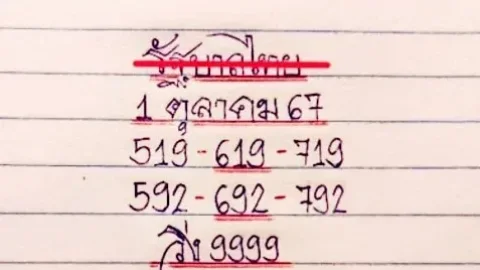 รัฐบาลไทย
1 ตุลาคม 67
519-619-719
592-692-792
วิ่ง 9999